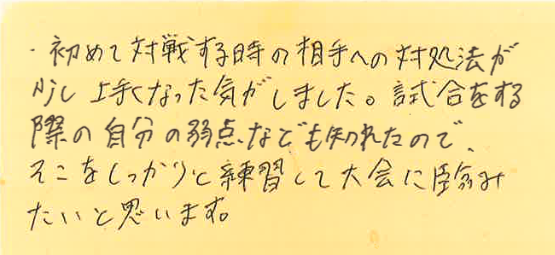 ・初めて対戦する時の相手への対処法が
少し上手くなった気がしました。試合をする
際の自分の弱点なども知れたので、
そこをしっかりと練習して大会に臨み
たいと思います。